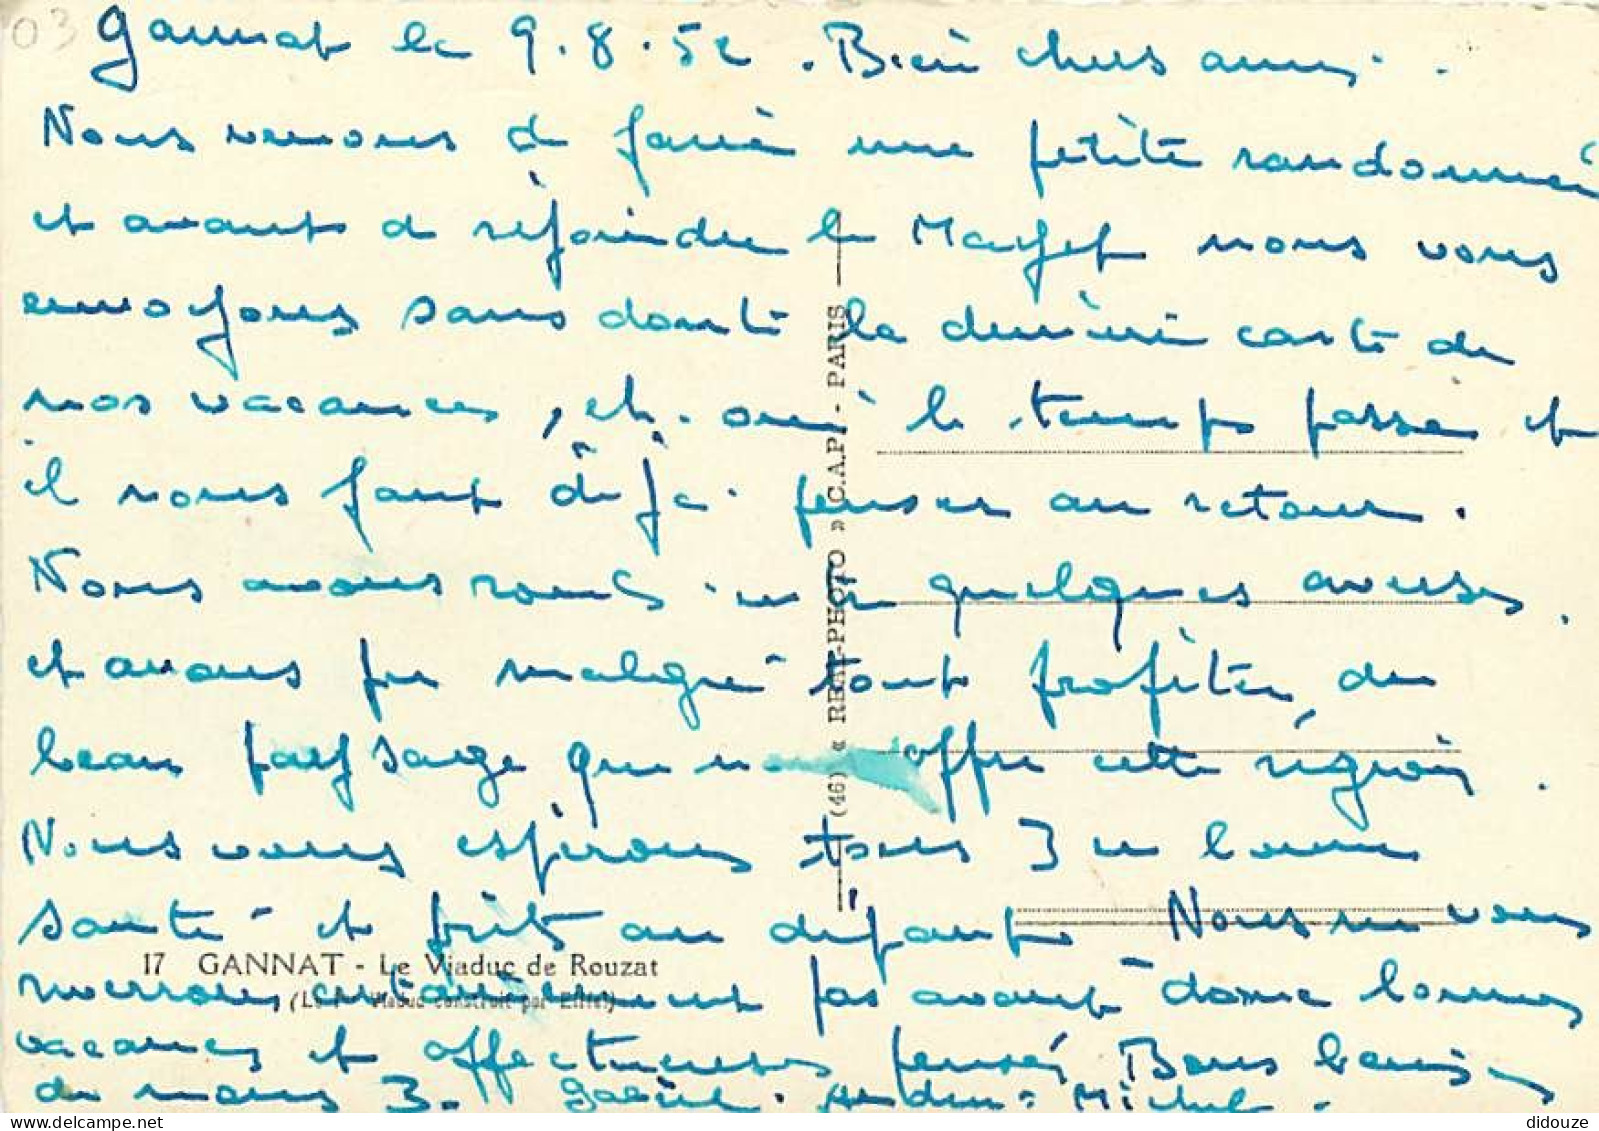 03
Gannat le 9.8.52. Bien chers amis.
Nous venons de faire une petite randonnée
et avant de rejoindre le nous vous
envoyons sans doute la dernière carte de
nos vacances, eh. oui le temps passe et
il nous faut déjà penser au retour.
Nous avons roulé quelques averses,
et avons pu malgré tout profiter du
beau paysage que nous offre cette région.
Nous vous espérons tous 3 en bonne
santé et prêts au départ. Nous ne vous
17 GANNAT - Le Viaduc de Rouzat
reverrons certainement pas avant donc bonnes
(Le 1er Viaduc construit par Eiffel)
vacances et affectueuses pensées Bons baisers
de nous 3. Michel.
(46) « REAL-PHOTO » C.A.P. - PARIS
didouze